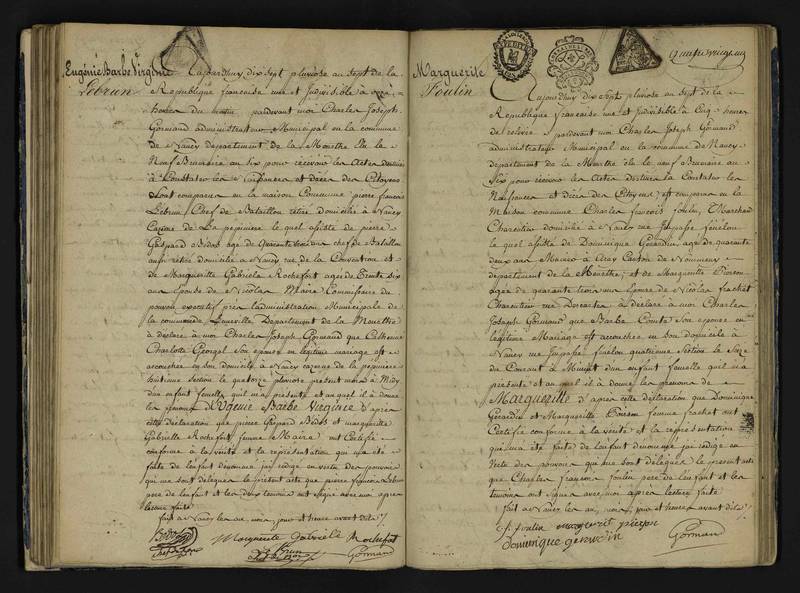 Eugénie Barbe Virginie
Lebrun
aujourdhuy dix Sept pluviose an Sept de la
Republique francaise une et Indivisible à
heures du matin pardevant moi Charles Joseph
Gormand administrateur Municipal de la commune
de Nancy departement de la Meurthe élu le
Neuf Brumaire an six pour recevoir les Actes destinés
à Constater les Naissances et décés des Citoyens
Sont comparus en la maison Commune pierre francois
Lebrun Chef de Bataillon retiré domicilié à Nancy
Cazerne de La pepiniere le quel assisté de pierre
Gaspard agé de Quarante ans chef de Bataillon
aussi retiré domicilié à Nancy rue de la Convention et
de Marguerite Gabriele Rochefort agée de Trente six
ans Epouse de Nicolas Maire Commissaire du
pouvoir executif près Ladministration Municipale de
la commune Departement de la Meurthe
à déclaré à moi Charles Joseph Gormand que Catherine
Charlotte Georgel Son épouse en legitime mariage est
accouchée en son domicile à Nancy cazerne de la pepiniere
huitieme Section le quatorze pluviose present mois à Midy
dun enfant femelle quil ma presenté et auquel il a donné
les prenoms d'Eugenie Barbe Virginie D'après
cette declaration que pierre Gaspard et marguerite
Gabrielle Rochefort femme Maire ont Certifié
conforme à la verité et la representation qui ma été
faite de lenfant denommé jai redigé en vertu des pouvoirs
qui me sont delegués le present acte que pierre francois Lebrun
pere de lenfant et les deux temoins ont signé avec moi apres
lecture faite
fait à Nancy les an, mois, jour et heure avant dits
Marguerite Gabriele Rochefort
Le Brun
Gormand
Marguerite
Poulin
Aujourdhuy dix Sept pluviose an Sept de la
Republique francaise une et Indivisible à Cinq heures
de relevée pardevant moi Charles Joseph Gormand
administrateur Municipal de la commune de Nancy
departement de la Meurthe élu le neuf Brumaire an
Six pour recevoir les Actes destinés à Constater les
Naissances et décés des Citoyens est comparu en la
Maison commune Charles françois Poulin, Marchand
Charcutier domicilié à Nancy rue Impasse fénélon
le quel assisté de Dominique Gerardin agé de quarante
deux ans Canton de Nomeny
departement de la Meurthe; et de Marguerite
agée de quarante trois ans Epouse de Nicolas frachet
Charcutier rue Descartes à déclaré à moi Charles
Joseph Gormand que Barbe Comte Son épouse en
legitime Mariage est accouchée en son domicile à
Nancy rue Impasse fénélon quatrieme Section le Seize
du Courant à Minuit dun enfant femelle quil ma
presenté et au quel il à donné les prenoms de
MARGUERITTE d'après cette declaration que Dominique
Gerardin et Marguerite femme frachet ont
Certifié conforme à la verité et la representation
qui ma été faite de lenfant denommé jai redigé en
Vertu des pouvoirs qui me sont delegués le present acte
que Charles francois Poulin pere de lenfant et les
temoins ont signés avec moi apres lecture faite
fait à Nancy les an, mois, jour et heure avant dits
poulin
dominique gerardin
Gormand